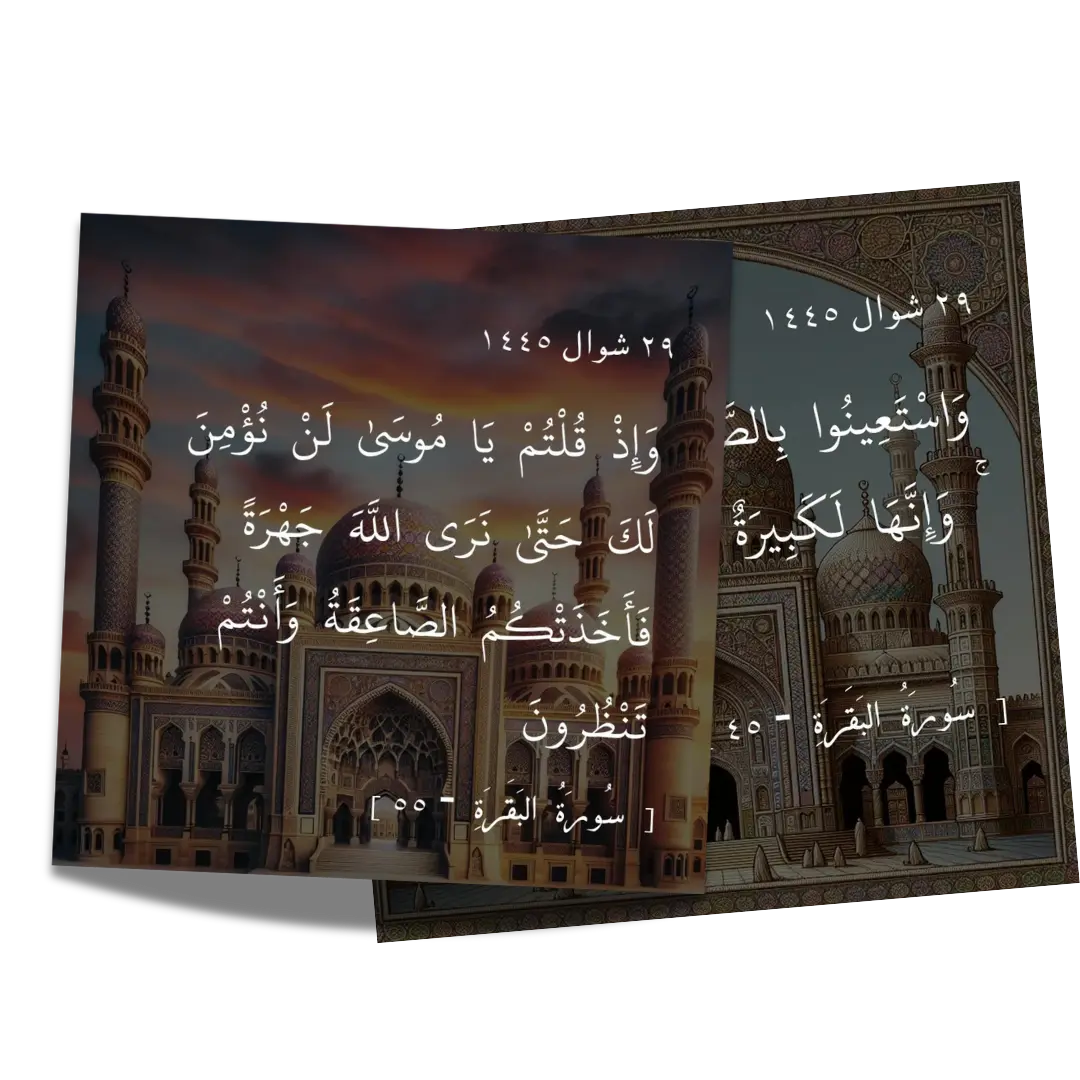 ٢٩ شوال ١٤٤٥
وَإِذْ قُلْتُمْ يَا مُوسَىٰ لَنْ نُؤْمِنَ
لَكَ حَتَّىٰ نَرَى اللَّهَ جَهْرَةً
فَأَخَذَتْكُمُ الصَّاعِقَةُ وَأَنْتُمْ
تَنْظُرُونَ
[ سُورَةُ البَقَرَةِ - ٥٥ ]
٢٩ شوال ١٤٤٥
وَاسْتَعِينُوا
وَإِنَّهَا لَكَبِيرَةٌ
[ سُورَةُ البَقَرَةِ - ٤٥